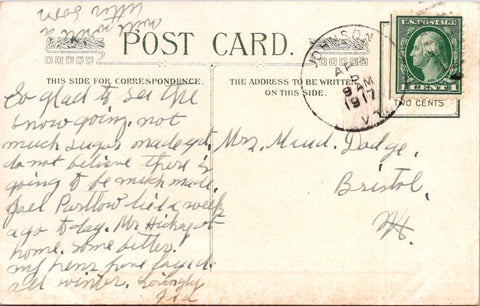 will write a
letter soon
POST CARD.
THIS SIDE FOR CORRESPONDENCE.
THE ADDRESS TO BE WRITTEN
ON THIS SIDE.
JOHNSON
AP
9 AM
1917
VT.
U.S. POSTAGE
1 CENT 1
TWO CENTS
So glad to see the
snow going. not
much sugar made yet,
do not believe there is
going to be much made.
Partlow died a week
ago to-day. Mr
home. some better.
my hens have layed
all winter. Lovingly
Mrs. Maud. Dodge,
Bristol,
Vt.